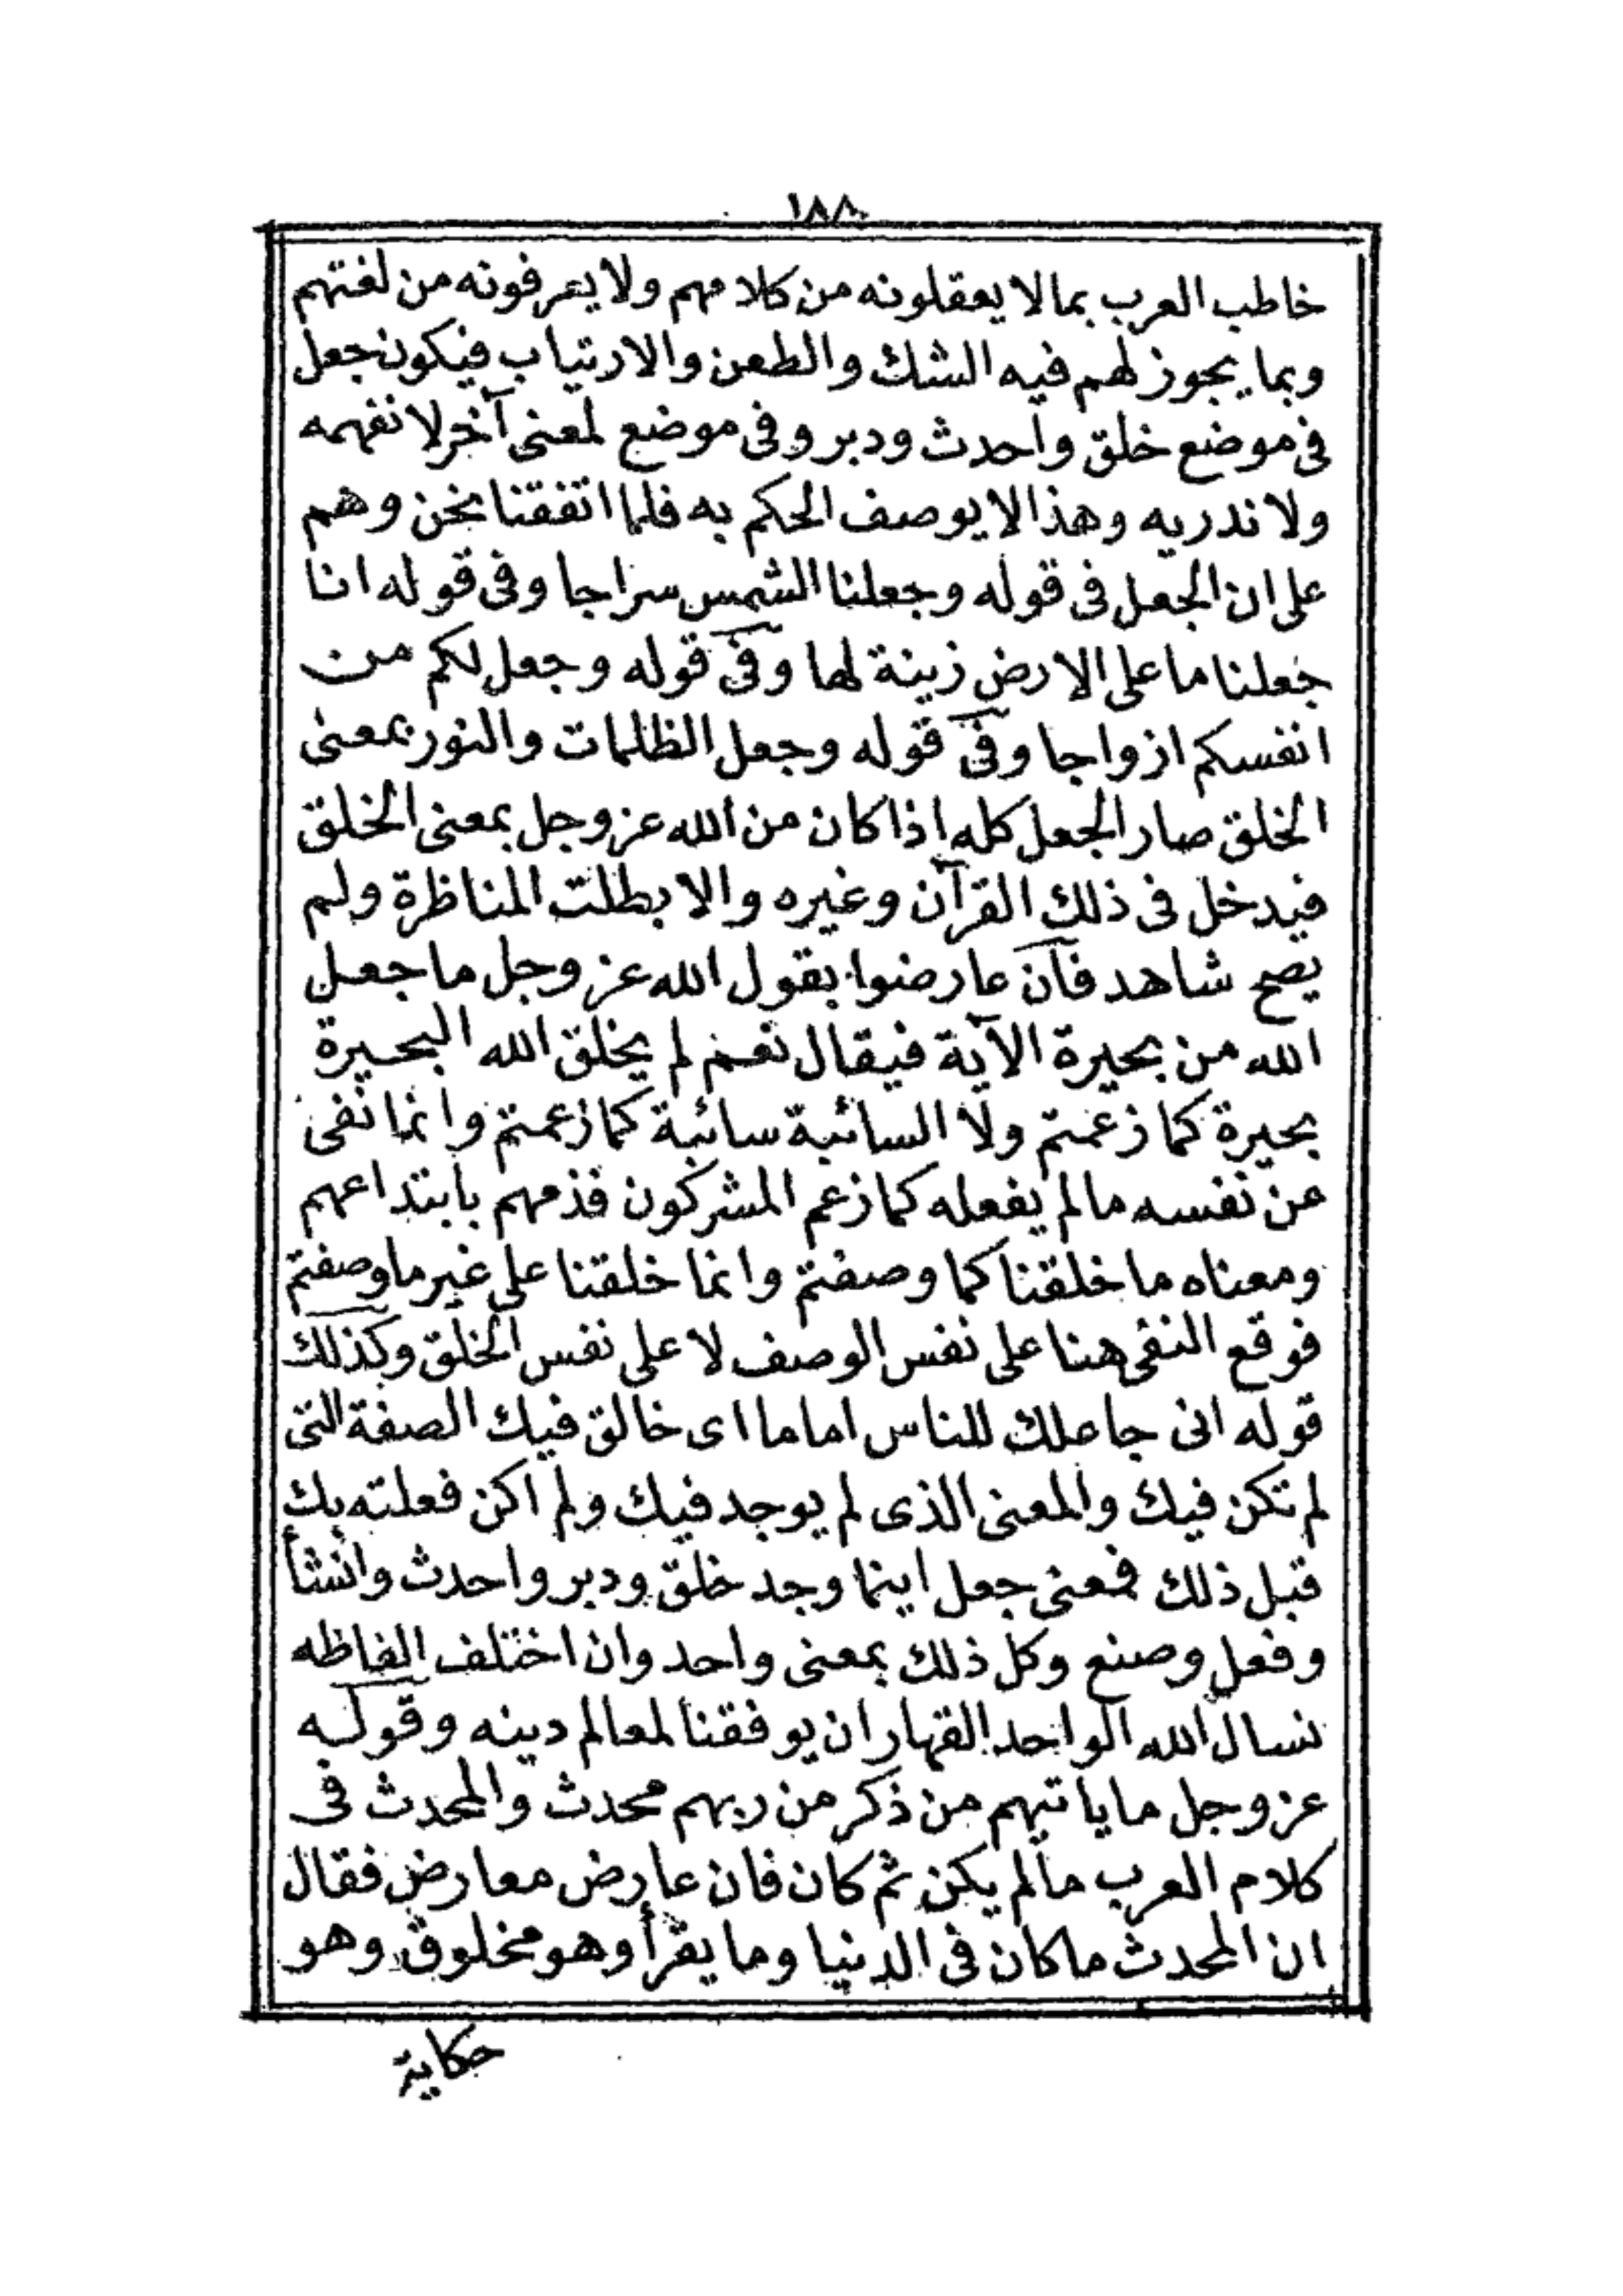 ١٨٨
خاطب العرب بمالا يعقلونه من كلامهم ولا يعرفونه من لغتهم
وبما يجوز لهم فيه الشك والطعن والارتياب فيكون جعل
فى موضع خلق واحدث ودبر وفى موضع لمعنى آخر لا نفهمه
ولا ندريه وهذا لا يوصف الحكم به فلما اتفقنا نحن وهم
على ان الجعل فى قوله وجعلنا الشمس سراجا وفى قوله انا
جعلنا ما على الارض زينة لها وفى قوله وجعل لكم من
انفسكم ازواجا وفى قوله وجعل الظلمات والنور بمعنى
الخلق صار الجعل كله اذا كان من الله عز وجل بمعنى الخلق
فيدخل فى ذلك القرآن وغيره والا بطلت المناظرة ولم
يصح شاهد فان عارضوا بقول الله عز وجل ما جعل
الله من بحيرة الآية فيقال نعم لم يخلق الله البحيرة
بحيرة كما زعمتم ولا السائبة سائبة كما زعمتم وانما نفى
عن نفسه مالم يفعله كما زعم المشركون فذمهم بابتداعهم
ومعناه ما خلقنا كما وصفتم وانما خلقنا على غير ما وصفتم
فوقع النفى هنا على نفس الوصف لا على نفس الخلق وكذلك
قوله انى جاعلك للناس اماما اى خالق فيك الصفة التى
لم تكن فيك والمعنى الذى لم يوجد فيك ولم اكن فعلته بك
قبل ذلك فمعنى جعل اينما وجد خلق ودبر واحدث وانشأ
وفعل وصنع وكل ذلك بمعنى واحد وان اختلف الفاظه
نسال الله الواحد القهار ان يوفقنا لمعالم دينه وقوله
عز وجل ما ياتيهم من ذكر من ربهم محدث والمحدث فى
كلام العرب مالم يكن ثم كان فان عارض معارض فقال
ان المحدث ما كان فى الدنيا وما يقرأ وهو مخلوق وهو
حكاية